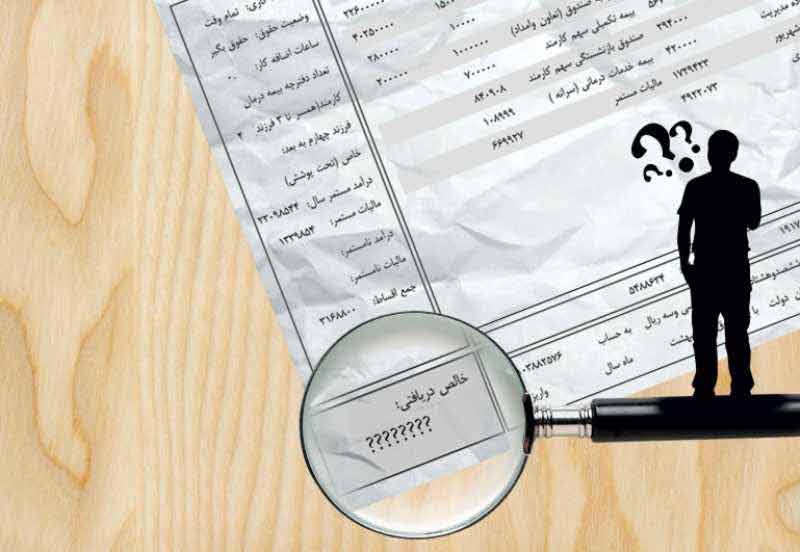 تمام وقت
وضعیت حقوق: حقوق بگیر
ساعات اضافه کار: ۰
تعداد دفترچه بیمه درمان
کارمند(همسر تا ۳ فرزند
فرزند چهارم به بعد:
خاص (تحت پوشش)
درآمد مستمر سال: ۲۳۰۹۸۵۴۴
مالیات مستمر: ۱۳۳۹۸۵۴
درآمد نامستمر:
مالیات نامستمر:
جمع اقساط: ۳۱۶۸۸۰۰
خالص دریافتی:
????????
۲۰۲۵۰۰۰
۲۸۰۰۰۰
۲۰۰۰۰۰
۱۰۰۰۰
۱۰۰۰۰۰۰
۷۰۰۰۰۰
صندوق (تعاون وامداد)
بیمه تکمیلی سهم کارمند
صندوق بازنشستگی سهم کارمند
۸۴۰۹۰۸
بیمه خدمات درمانی (سرانه )
۱۰۸۹۹۹
مالیات مستمر
۶۶۹۹۲۷
۲۹۴۰۰۰
۴۲۰۰۰۰
۱۷۲۹۴۲۳
۴۹۲۲۰۷۳
مدیریت
۵۴۸۸۶۲۴
وسه ریال
به حساب
۰۳۸۸۲۵۷۶
دولت با
ماه سال
???